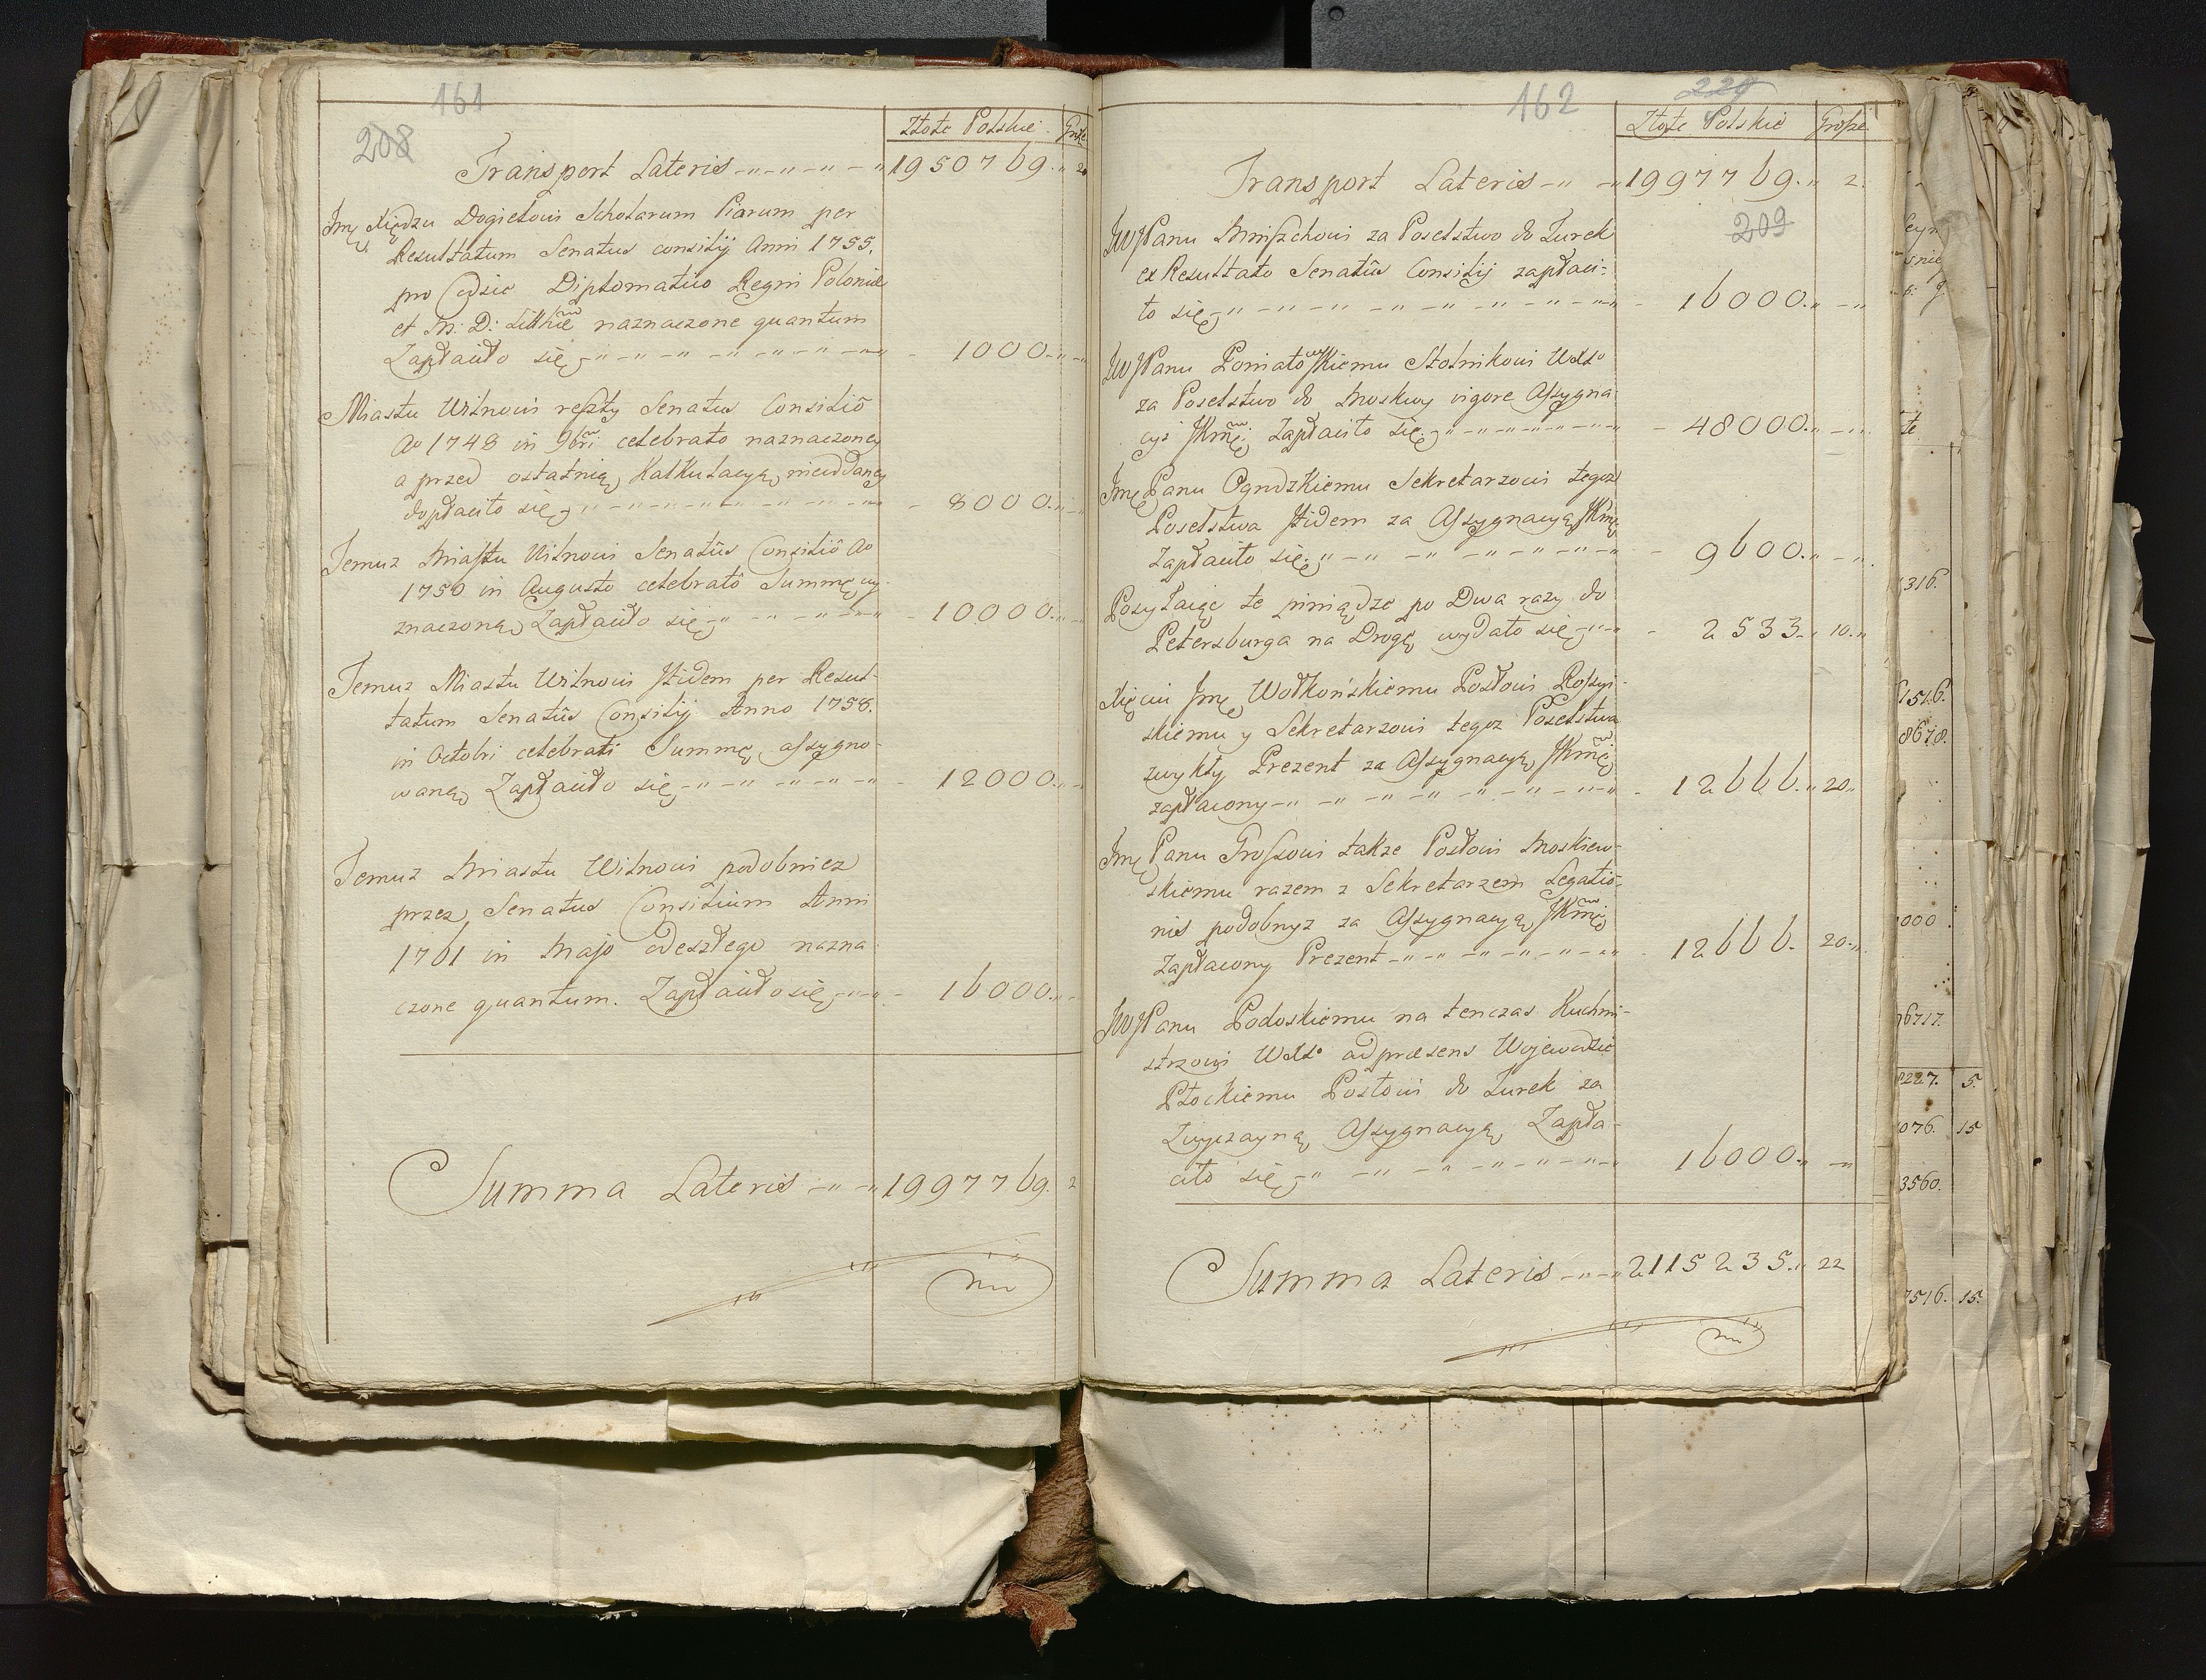 161
208
Złote Polskie. Grosze
Transport Lateris 1950769. 2
Jmę Xiędzu Dogielowi Scholarum Piarum per
Resultatum Senatus consilij Anni 1755.
pro Codice Diplomatico Regni Poloniæ
et M: D: Litthiæ naznaczone quantum
Zapłaciło się 1000.
Miastu Wilnowi reszty Senatus Consiliô
Aô 1748 in 9bri celebrato naznaczoney
a przed ostatnią Kalkulacyą nieoddaney
dopłaciło się 8000.
Temuz Miastu Wilnowi Senatûs Consiliô Aô
1750 in Augusto celebratô Summę wy-
znaczoną Zapłaciło się 10000.
Temuz Miastu Wilnowi Itidem per Resul-
tatum Senatûs Consilij Anno 1758.
in Octobri celebrati Summę assygno-
waną Zapłaciło się 12000.
Temuz Miastu Wilnowi podobniez
przez Senatus Consilium Anni
1761 in Majo odeszłego nazna-
czone quantum. Zapłaciło się 16000.
Summa Lateris 1997769. 2
162
229
209
Złote Polskie Grosze
Transport Lateris 1997769. 2.
JWJPanu Mniszchowi za Poselstwo do Turek
ex Resultato Senatûs Consilij zapłaci-
to się 16000.
JWJPanu Poniatowskiemu Stolnikowi WXLo
za Poselstwo do Moskwy vigore Assygna
cyi JKmći Zapłaciło się 48000.
Jmę Panu Ogrodzkiemu Sekretarzowi tegoz
Poselstwa Itidem za Assygnacyą JKmći
Zapłaciło się 9600.
Posyłaiąc te piniądze po Dwa razy do
Petersburga na Drogę wydało się 2533. 10.
Xięciu Jmę Wołkońskiemu Posłowi Rossyi-
skiemu y Sekretarzowi tegoz Poselstwa
zwykły Prezent za Assygnacyą JKmći
zapłacony 12666. 20.
Jmę Panu Grossowi takze Posłowi Moskiew-
skiemu razem z Sekretarzem Legatio-
nis podobnyz za Assygnacyą JKmći
Zapłacony Prezent 12666. 20.
JWJPanu Podoskiemu na tenczas Kuchmi-
strzowi WXLo ad præsens Wojewodzie
Płockiemu Posłowi do Turek za
Zwyczayną Assygnacyą Zapła-
ciło się 16000.
Summa Lateris 2115235. 22
316.
8678.
000
6717.
2227. 5.
076. 15
3560.
7516. 15.